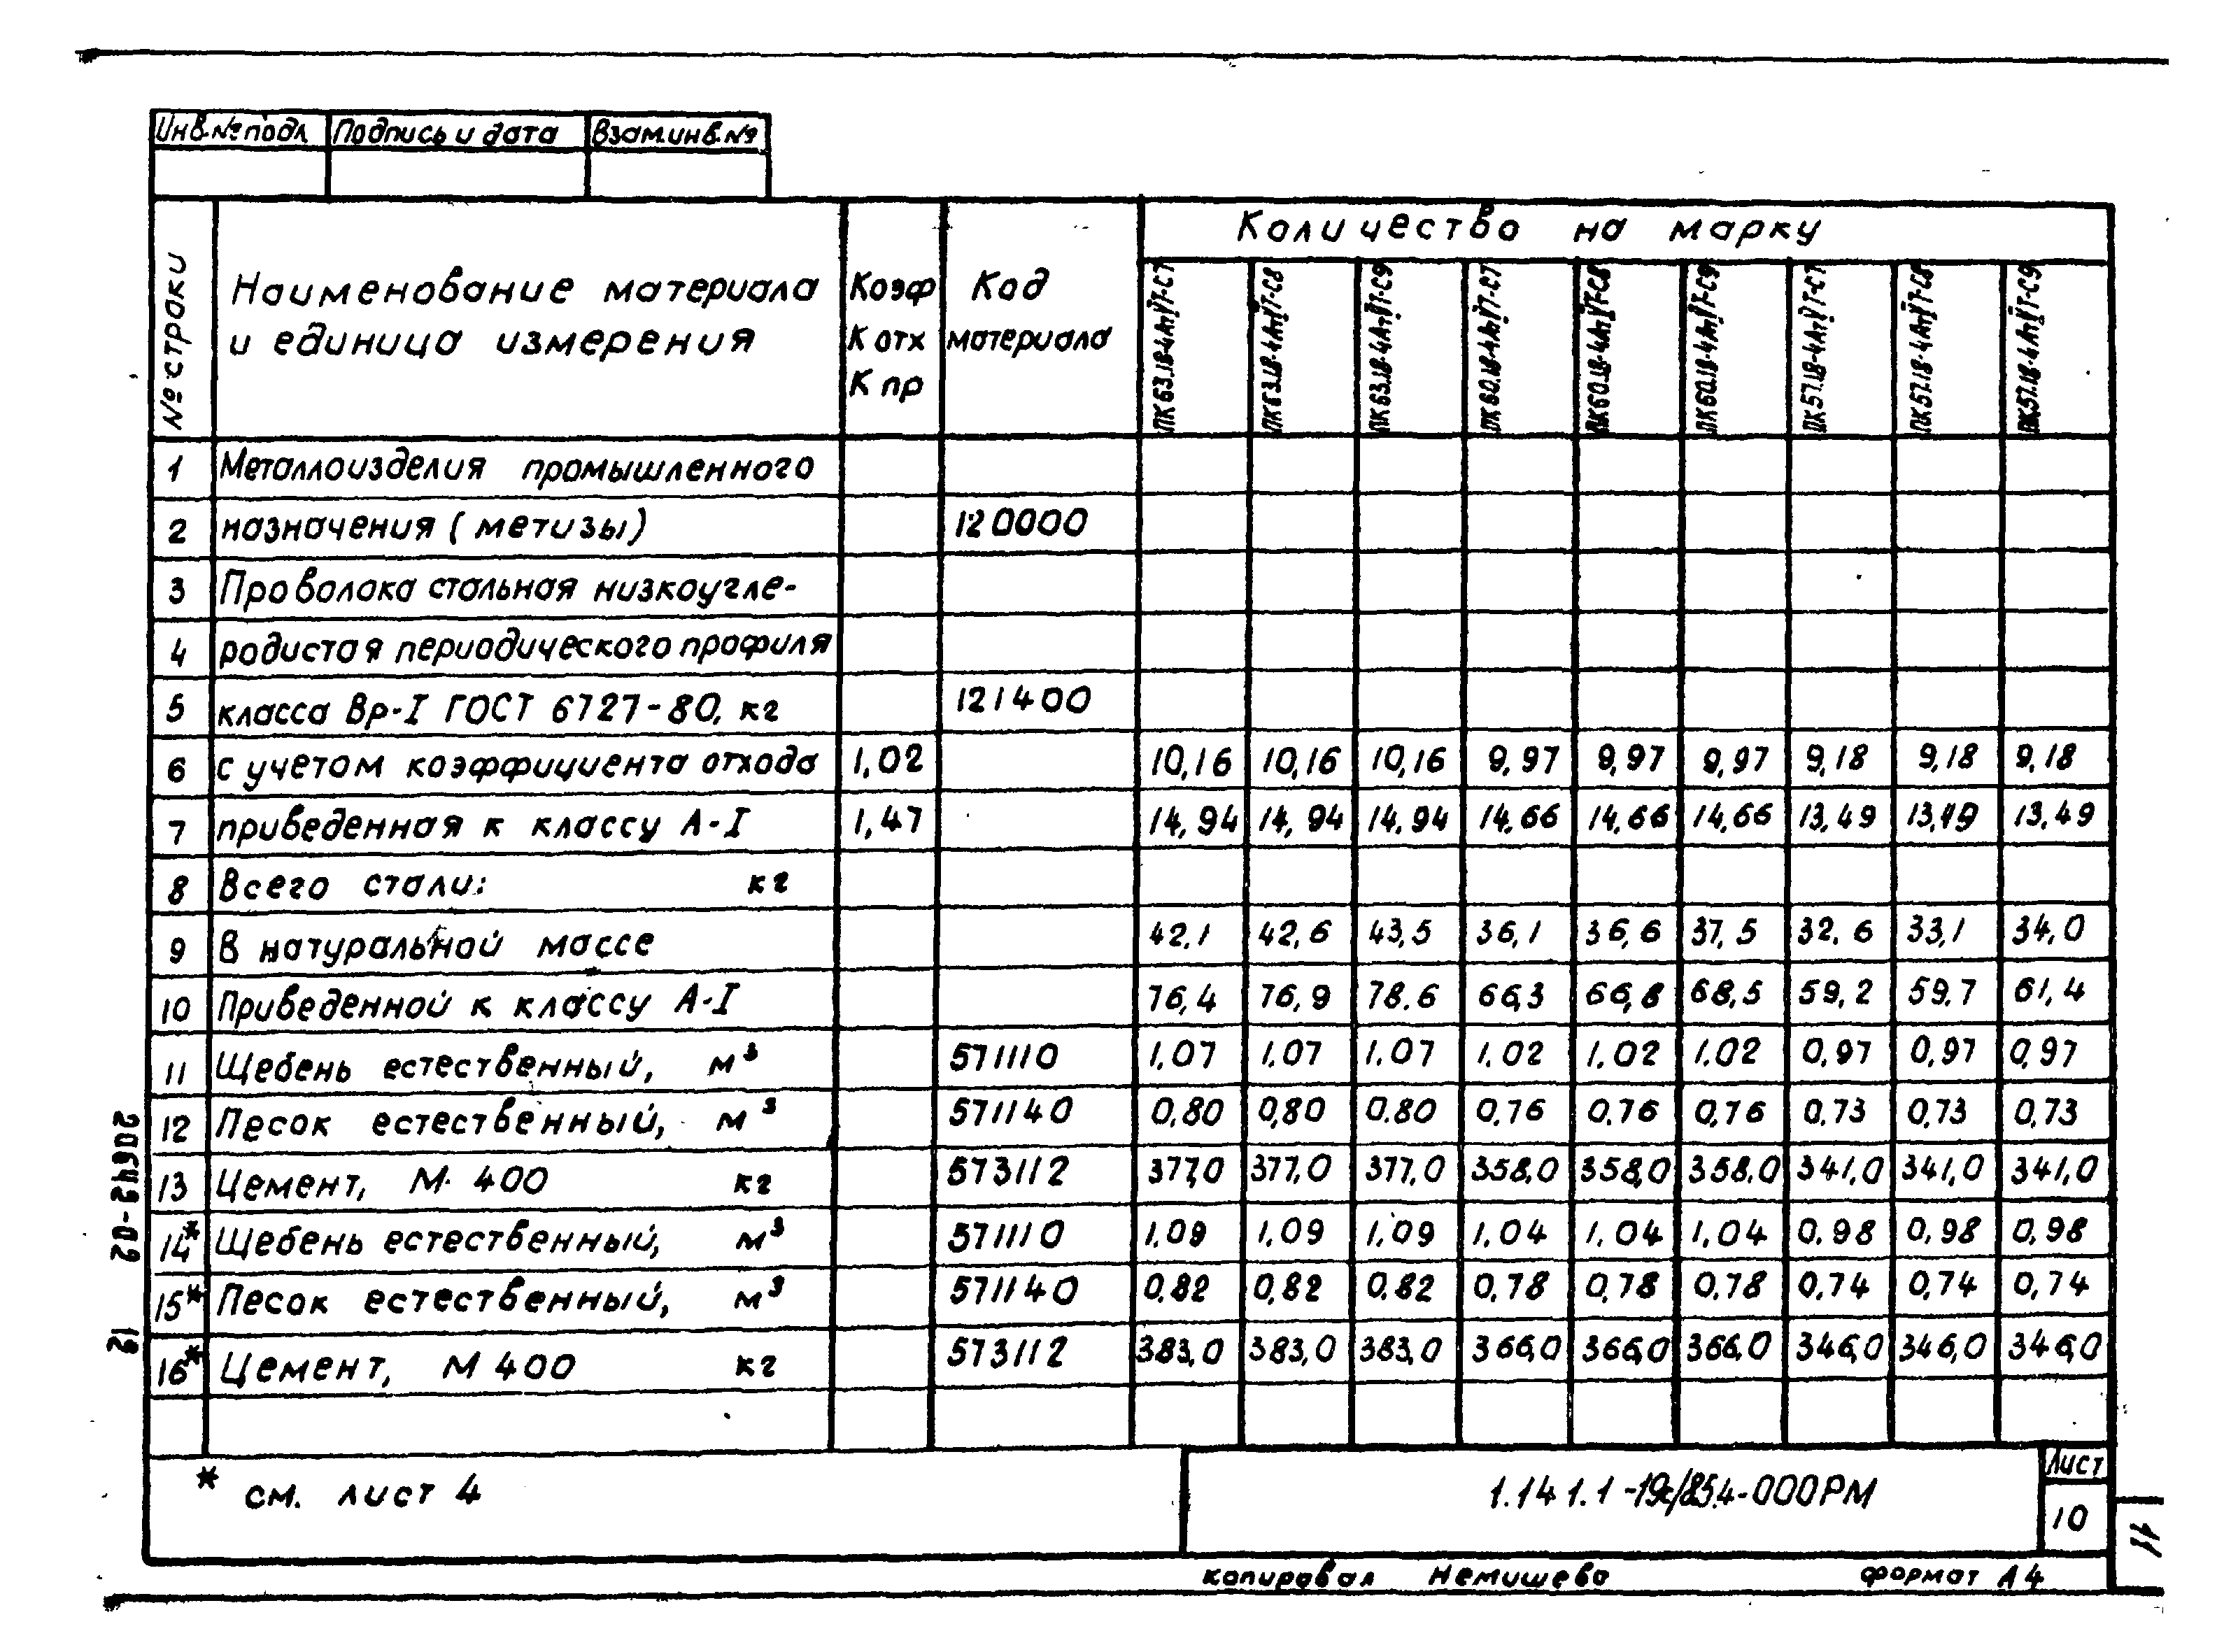 Инв.№ подл. Подпись и дата Взам.инв.№
№ строки
Наименование материала
и единица измерения
Коэф
К отх
К пр
Код
материала
Количество на марку
ПК63.18-4АтVТ-С7 ПК63.18-4АтVТ-С8 ПК63.18-4АтVТ-С9 ПК60.18-4АтVТ-С7 ПК60.18-4АтVТ-С8 ПК60.18-4АтVТ-С9 ПК57.18-4АтVТ-С7 ПК57.18-4АтVТ-С8 ПК57.18-4АтVТ-С9
1 Металлоизделия промышленного
2 назначения (метизы) 120000
3 Проволока стальная низкоугле-
4 родистая периодического профиля
5 класса Вр-I ГОСТ 6727-80, кг 121400
6 с учетом коэффициента отхода 1,02 10,16 10,16 10,16 9,97 9,97 9,97 9,18 9,18 9,18
7 приведенная к классу А-I 1,47 14,94 14,94 14,94 14,66 14,66 14,66 13,49 13,49 13,49
8 Всего стали: кг
9 В натуральной массе 42,1 42,6 43,5 36,1 36,6 37,5 32,6 33,1 34,0
10 Приведенной к классу А-I 76,4 76,9 78.6 66,3 66,8 68,5 59,2 59,7 61,4
11 Щебень естественный, м³ 571110 1,07 1,07 1,07 1,02 1,02 1,02 0,97 0,97 0,97
12 Песок естественный, м³ 571140 0,80 0,80 0.80 0,76 0,76 0,76 0,73 0,73 0,73
13 Цемент, М. 400 кг 573112 377,0 377,0 377,0 358,0 358,0 358,0 341,0 341,0 341,0
14* Щебень естественный, м³ 571110 1,09 1,09 1,09 1,04 1,04 1,04 0,98 0,98 0,98
15* Песок естественный, м³ 571140 0,82 0,82 0,82 0,78 0,78 0,78 0,74 0,74 0,74
16* Цемент, М 400 кг 573112 383,0 383,0 383,0 366,0 366,0 366,0 346,0 346,0 346,0
* см. лист 4
1.141.1-19с/85.4-000РМ
Лист
10
копировал Немишева формат А4
20643-02 12
11